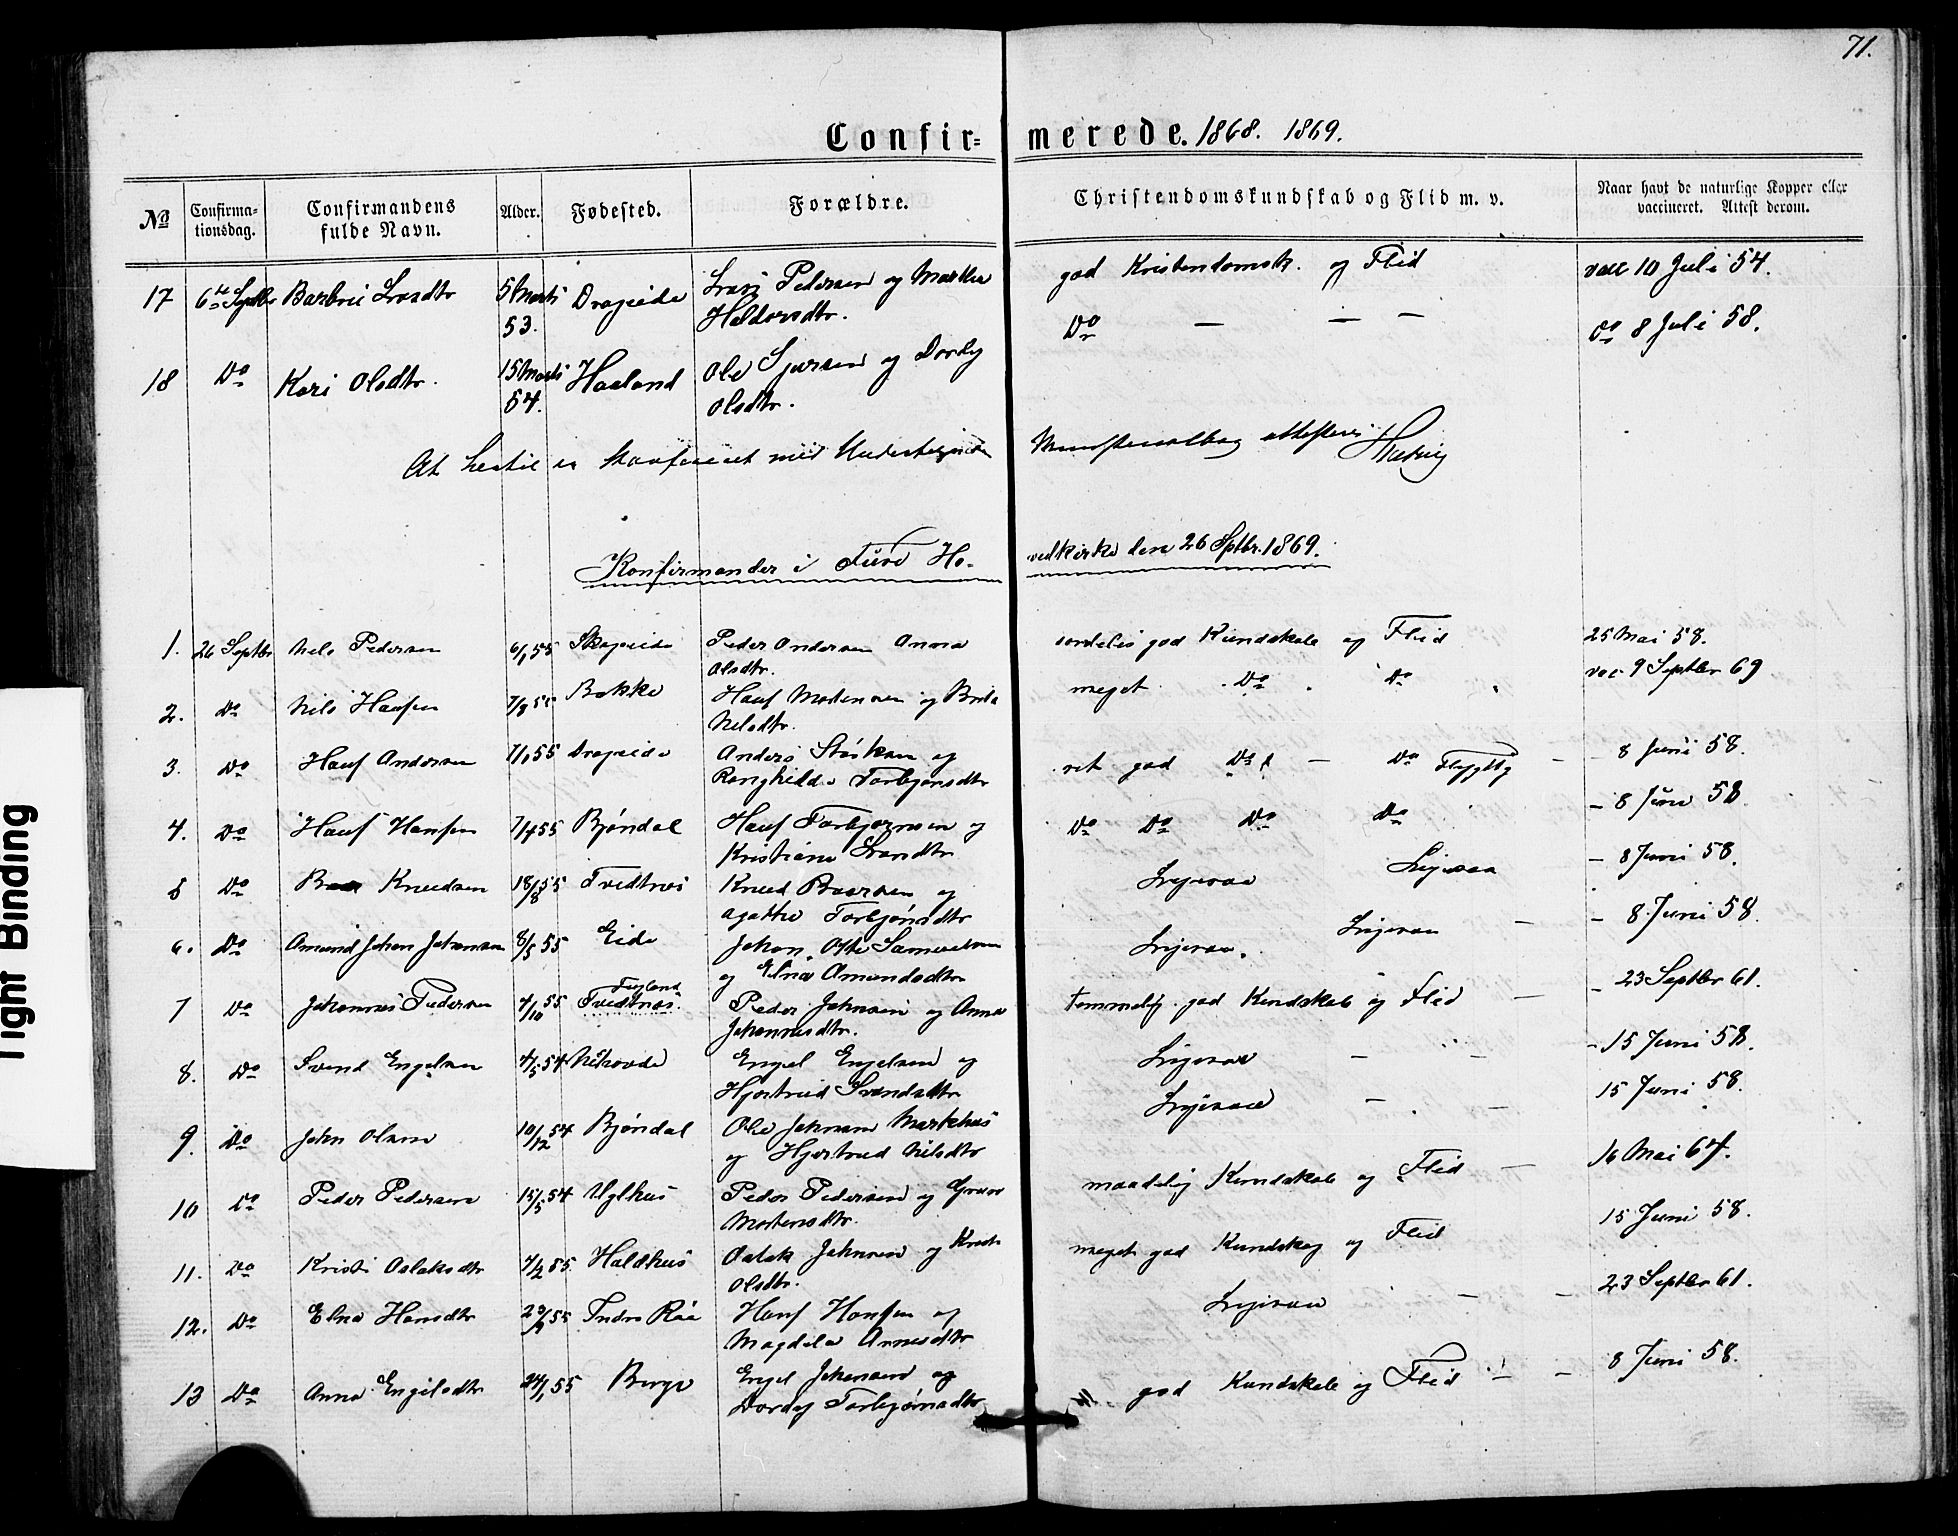 71.
Confirmerede. 1868. 1869.
No Confirmationsdag. Confirmandens fulde Navn. Alder. Fødested. Forældre. Christendomskundskab og Flid m. v. Naar havt de naturlige Kopper eller vaccineret. Attest derom.
17 6te Septbr 5 Marts Dragseide Pedersen og Martha god Kristendomsk. og Flid vacc 10 Juli 54.
53. Haldorsdtr.
18 Do Kari Olsdtr. 15 Marts Haaland Ole Sjursen og Dordy Do — — — Do 8 Juli 58.
54. Olsdtr.
At hertil er med Undertegnede attesteres
Konfirmander i Hovedkirke den 26 Septbr. 1869.
1. 26 Septbr Nels Pedersen 6/1 55 Skogseide Peder Andersen Anna særdeles god Kundskab og Flid 25 Mai 58.
Olsdtr.
2. Do Nils Hansen 7/8 55 Bakke Hans Mortensen og Brita meget Do Do vac. 9 Septbr 69
Nelsdtr.
3. Do Hans Andersen 7/1 55 Dragseide Anders og ret god Do — Do — 8 Juni 58.
Ranghilde Torbjønsdtr
4. Do Hans Hansen 7/4 55 Bjøndal Hans Torbjørnsen og Do Do Do Do — 8 Juni 58
Kristiane
5 Do Knudsen 18/8 55 Tvedtnæs Knud Baarsen og Ligesaa Ligesaa — 8 Juni 58.
Agathe Torbjønsdtr
6. Do Amund Johan Johansen 8/5 55 Eide Johan Otte Samuelsen Ligesaa. Ligesaa — — 8 Juni 58.
og Elna Amundsdtr
7 Do Johannes Pedersen 4/10 55 Tvedtnæs. Peder Johnsen og Anna temmelig god Kundskab og Flid — — 23 Septbr 61.
Johannesdtr.
8. Do Svend Engelsen 4/5 54 Engel Engelsen og Ligesaa — — — 15 Juni 58.
Hjertrud Svendsdtr
9. Do John Olsen 10/12 54 Bjøndal Ole Johnsen Markhus Ligesaa — — 15 Juni 58.
og Hjertrud Nilsdtr
10 Do Peder Pedersen 15/5 54 Uglhus Peder Pedersen og maadelig Kundskab og Flid — 16 Mai 64.
Mortensdtr.
11. Do Kristi Oslaksdtr 4/2 55 Haldhus Oslak Johnsen og meget god Kundskab og Flid 15 Juni 58.
Olsdtr.
12. Do Elna Hansdtr 55 Indre Raa Hans Hansen og Ligesaa — — 23 Septbr 61.
Magdela
13 Do Anna Engelsdtr 24/1 55 Berge Engel Johansen og god Kundskab og Flid — — 8 Juni 58.
Dordey Torbjørnsdtr
Tight Binding